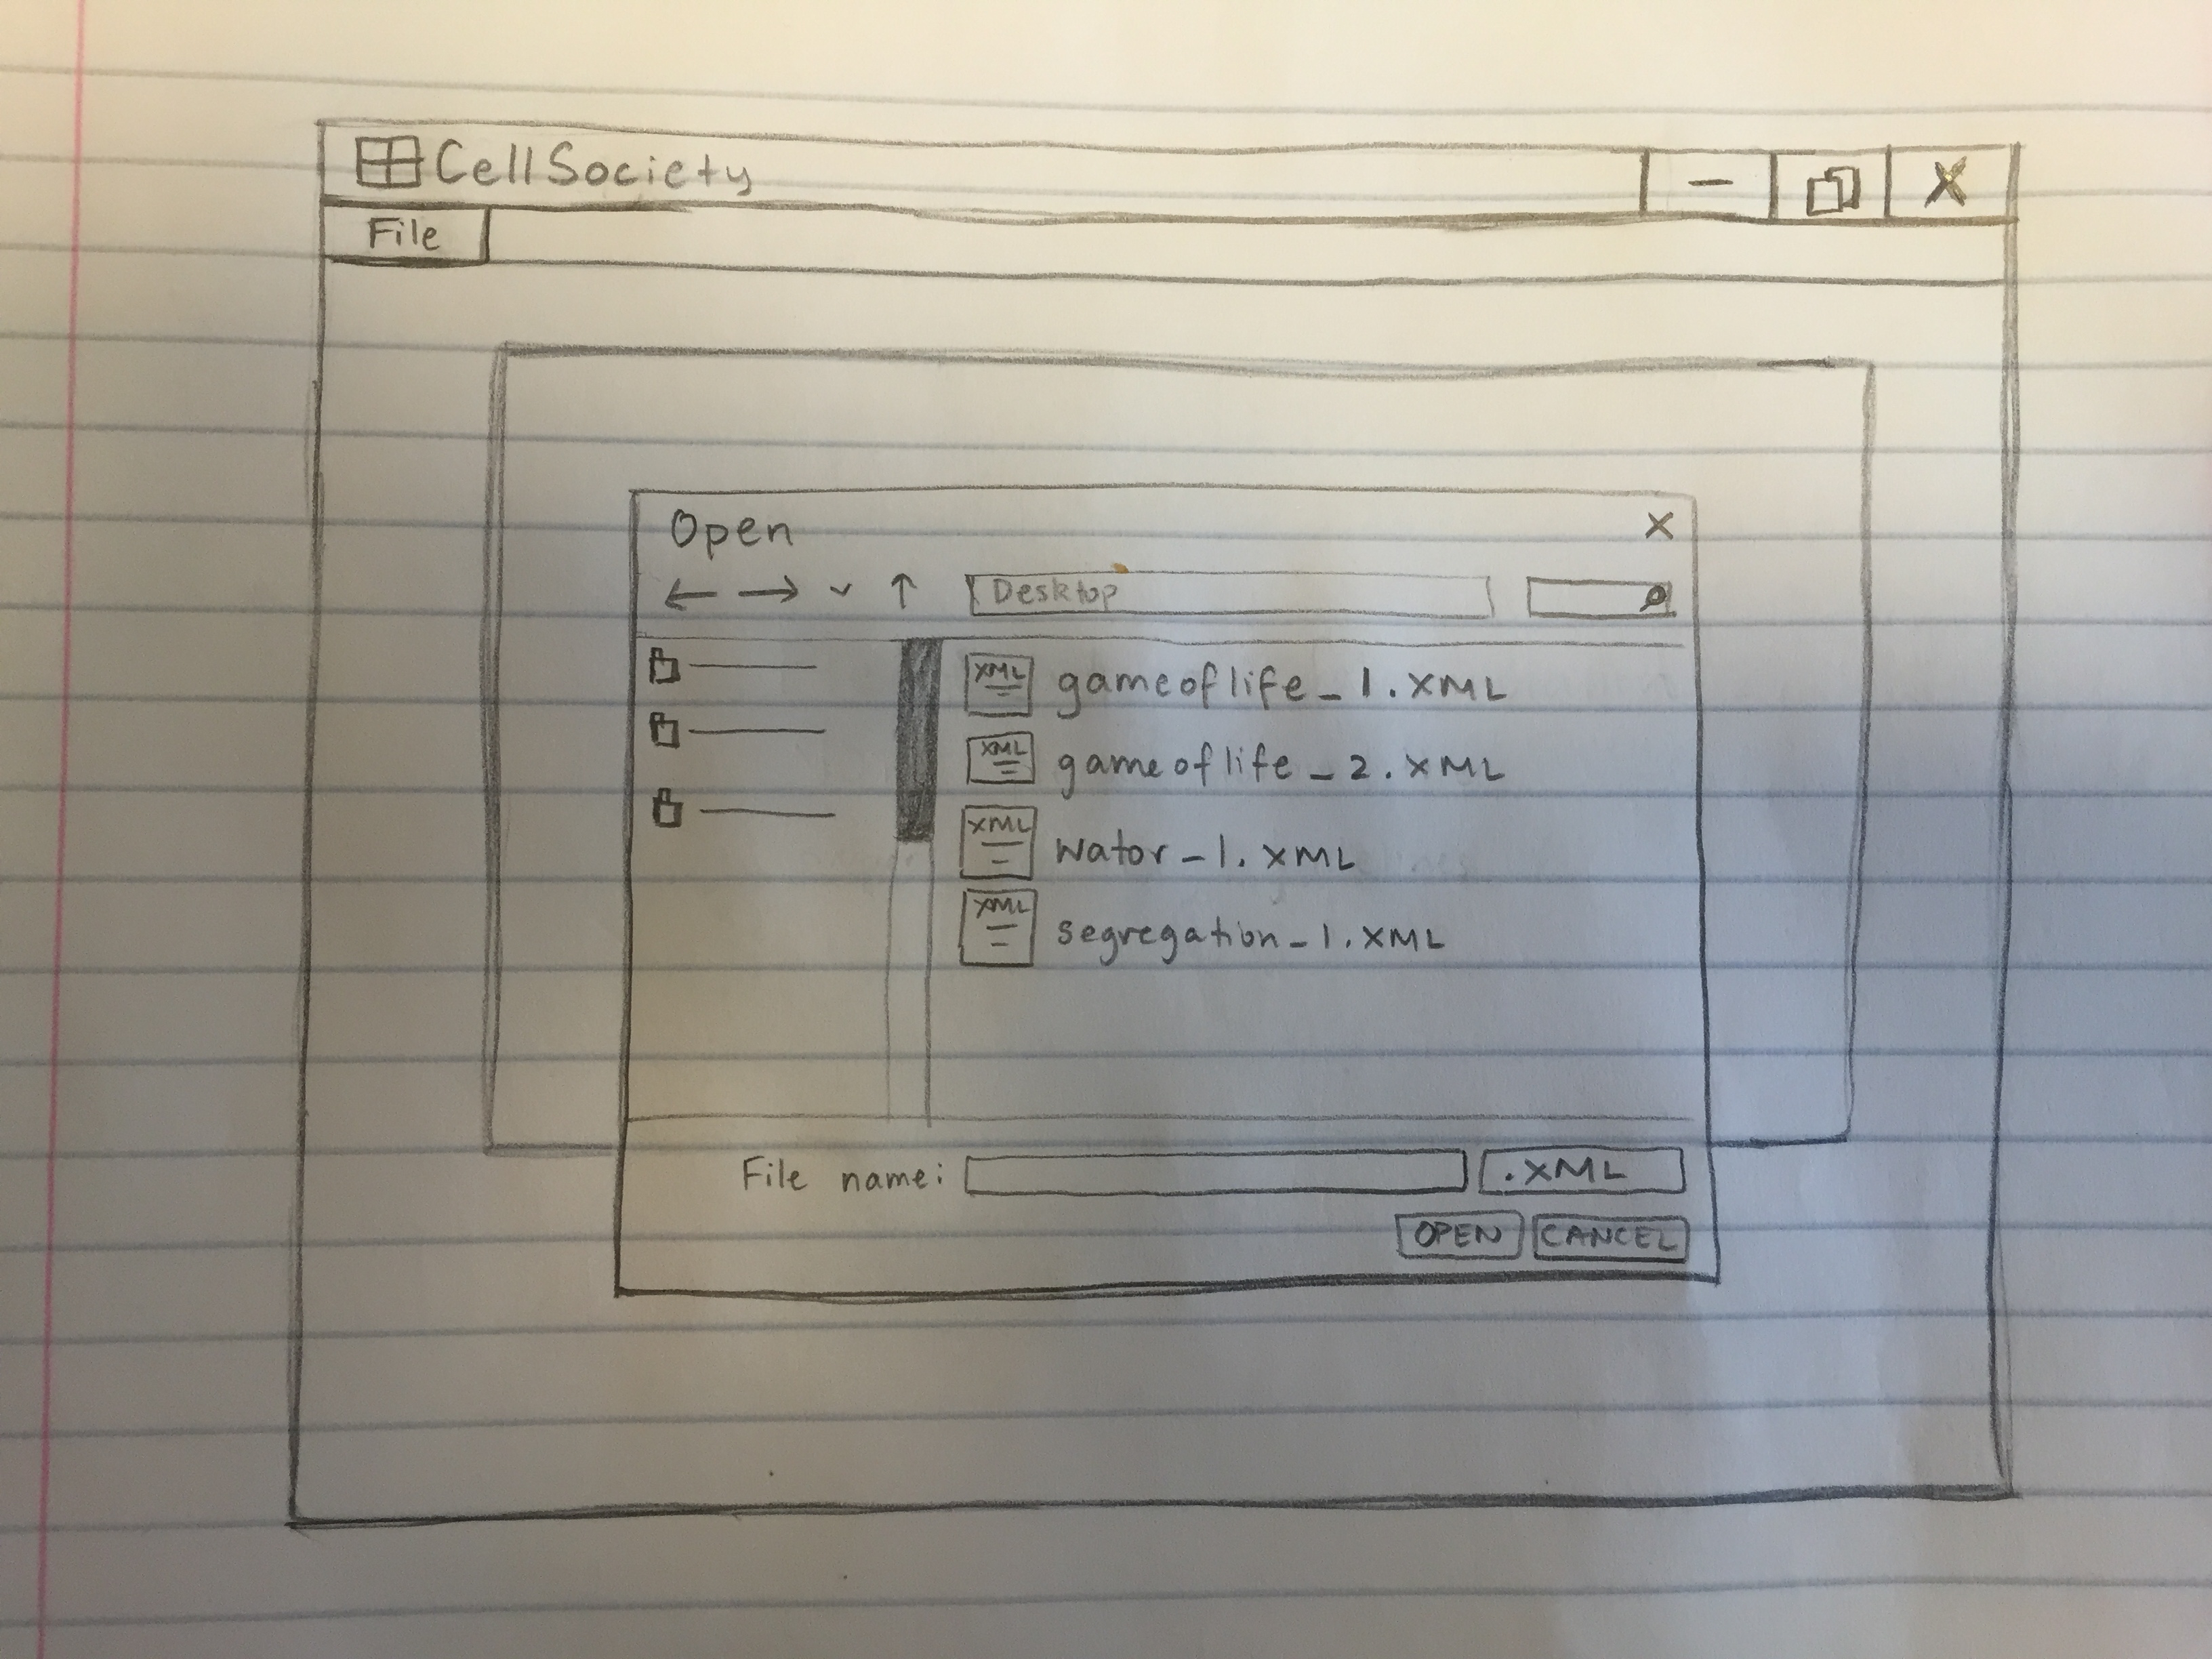 CellSociety
File
Open
Desktop
XML gameoflife_1.XML
XML gameoflife_2.XML
XML wator_1.XML
XML segregation_1.XML
File name: .XML
OPEN CANCEL